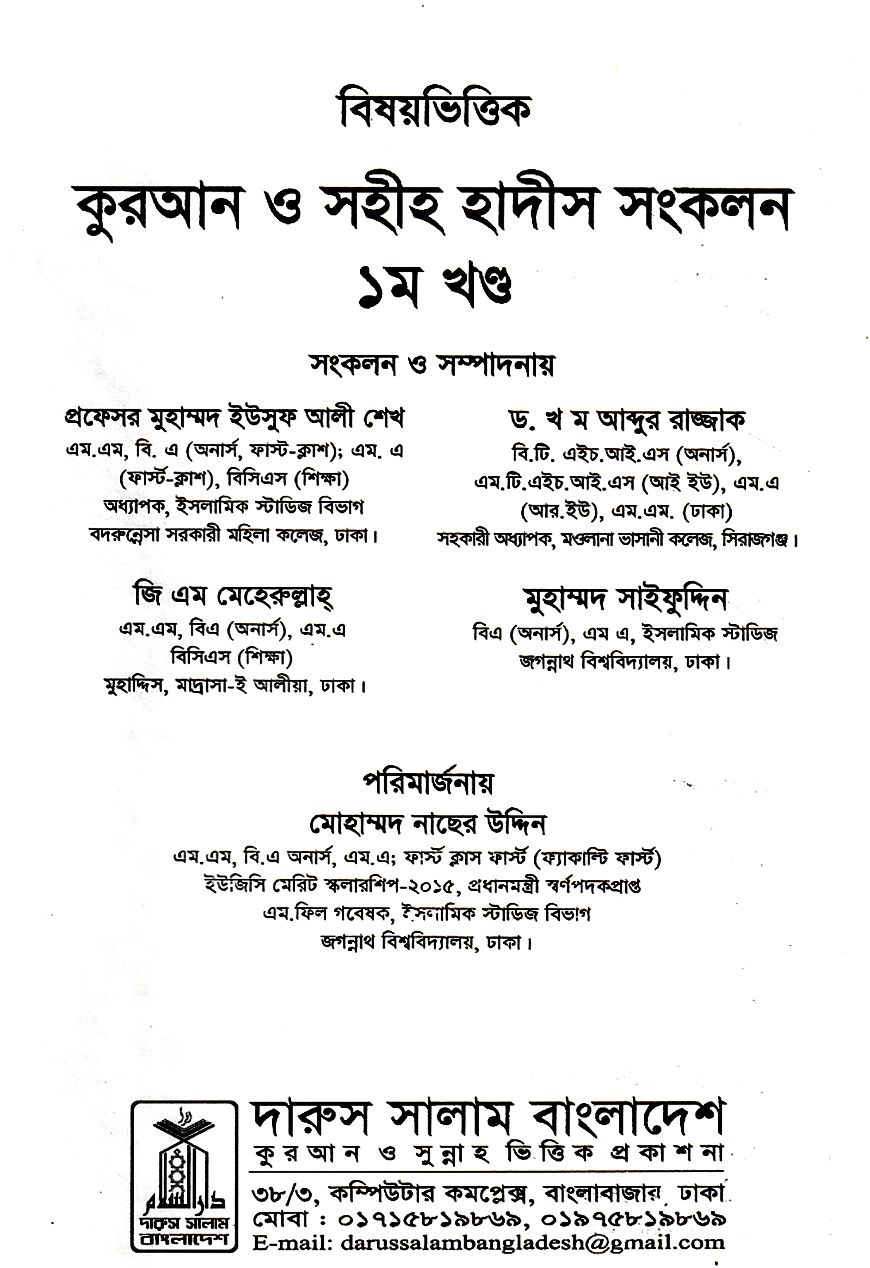 বিষয়ভিত্তিক
কুরআন ও সহীহ হাদীস সংকলন
১ম খণ্ড
সংকলন ও সম্পাদনায়
প্রফেসর মুহাম্মদ ইউসুফ আলী শেখ
এম.এম, বি. এ (অনার্স, ফাস্ট-ক্লাশ); এম. এ
(ফার্স্ট-ক্লাশ), বিসিএস (শিক্ষা)
অধ্যাপক, ইসলামিক স্টাডিজ বিভাগ
বদরুন্নেসা সরকারী মহিলা কলেজ, ঢাকা।
ড. খ ম আব্দুর রাজ্জাক
বি.টি. এইচ.আই.এস (অনার্স),
এম.টি.এইচ.আই.এস (আই ইউ), এম.এ
(আর.ইউ), এম.এম. (ঢাকা)
সহকারী অধ্যাপক, মওলানা ভাসানী কলেজ, সিরাজগঞ্জ।
জি এম মেহেরুল্লাহ্
এম.এম, বিএ (অনার্স), এম.এ
বিসিএস (শিক্ষা)
মুহাদ্দিস, মাদ্রাসা-ই আলীয়া, ঢাকা।
মুহাম্মদ সাইফুদ্দিন
বিএ (অনার্স), এম এ, ইসলামিক স্টাডিজ
জগন্নাথ বিশ্ববিদ্যালয়, ঢাকা।
পরিমার্জনায়
মোহাম্মদ নাছের উদ্দিন
এম.এম, বি.এ অনার্স, এম.এ; ফার্স্ট ক্লাস ফার্স্ট (ফ্যাকাল্টি ফার্স্ট)
ইউজিসি মেরিট স্কলারশিপ-২০১৫, প্রধানমন্ত্রী স্বর্ণপদকপ্রাপ্ত
এম.ফিল গবেষক, ইসলামিক স্টাডিজ বিভাগ
জগন্নাথ বিশ্ববিদ্যালয়, ঢাকা।
دار السلام
দারুস সালাম
বাংলাদেশ
দারুস সালাম বাংলাদেশ
কুরআন ও সুন্নাহ ভিত্তিক প্রকাশনা
৩৮/৩, কম্পিউটার কমপ্লেক্স, বাংলাবাজার, ঢাকা
মোবা : ০১৭১৫৮১৯৮৬৯, ০১৯৭৫৮১৯৮৬৯
E-mail: darussalambangladesh@gmail.com